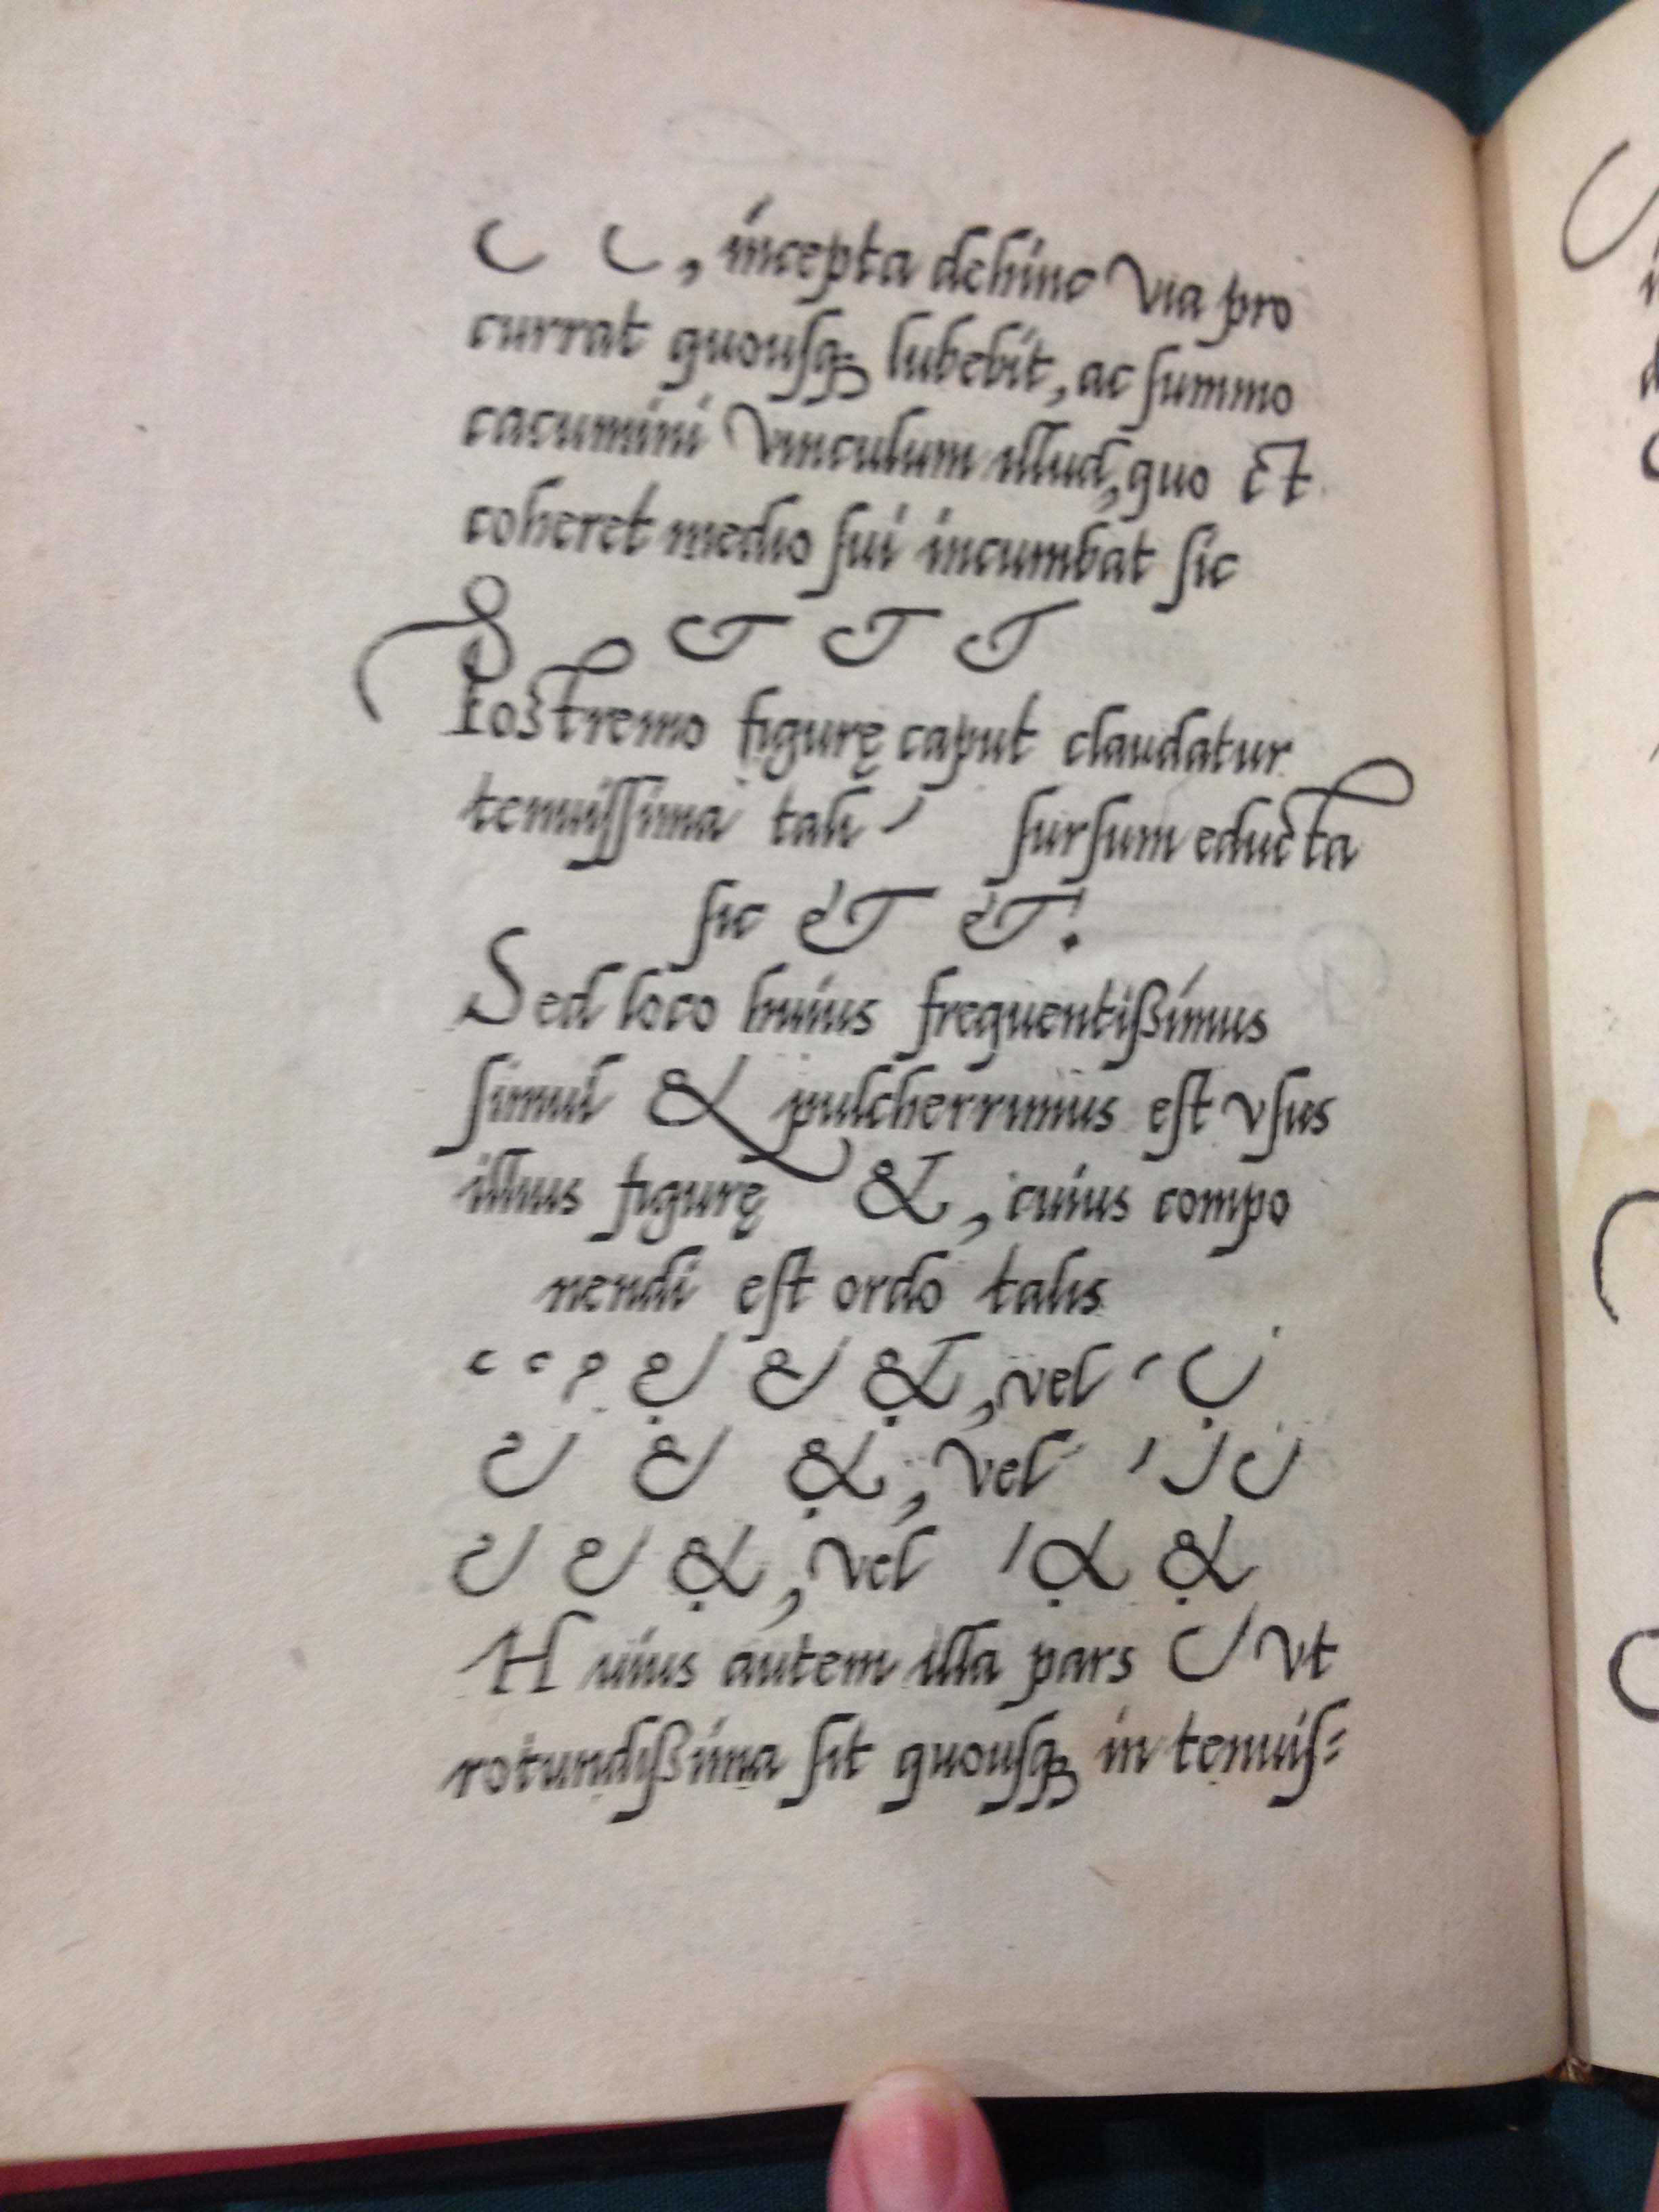 , incepta dehinc via pro
currat quousq; lubebit, ac summo
cacumini vinculum illud, quo Et
coheret medio sui incumbat sic
Postremo figurę caput claudatur
tenuissima tali sursum educta
sic & &.
Sed loco huius frequentißimus
simul & pulcherrimus est vsus
illius figurę &, cuius compo
nendi est ordo talis
&, vel
&, vel
&, vel & &
Huius autem illa pars vt
rotundißima sit quousq; in tenuis=